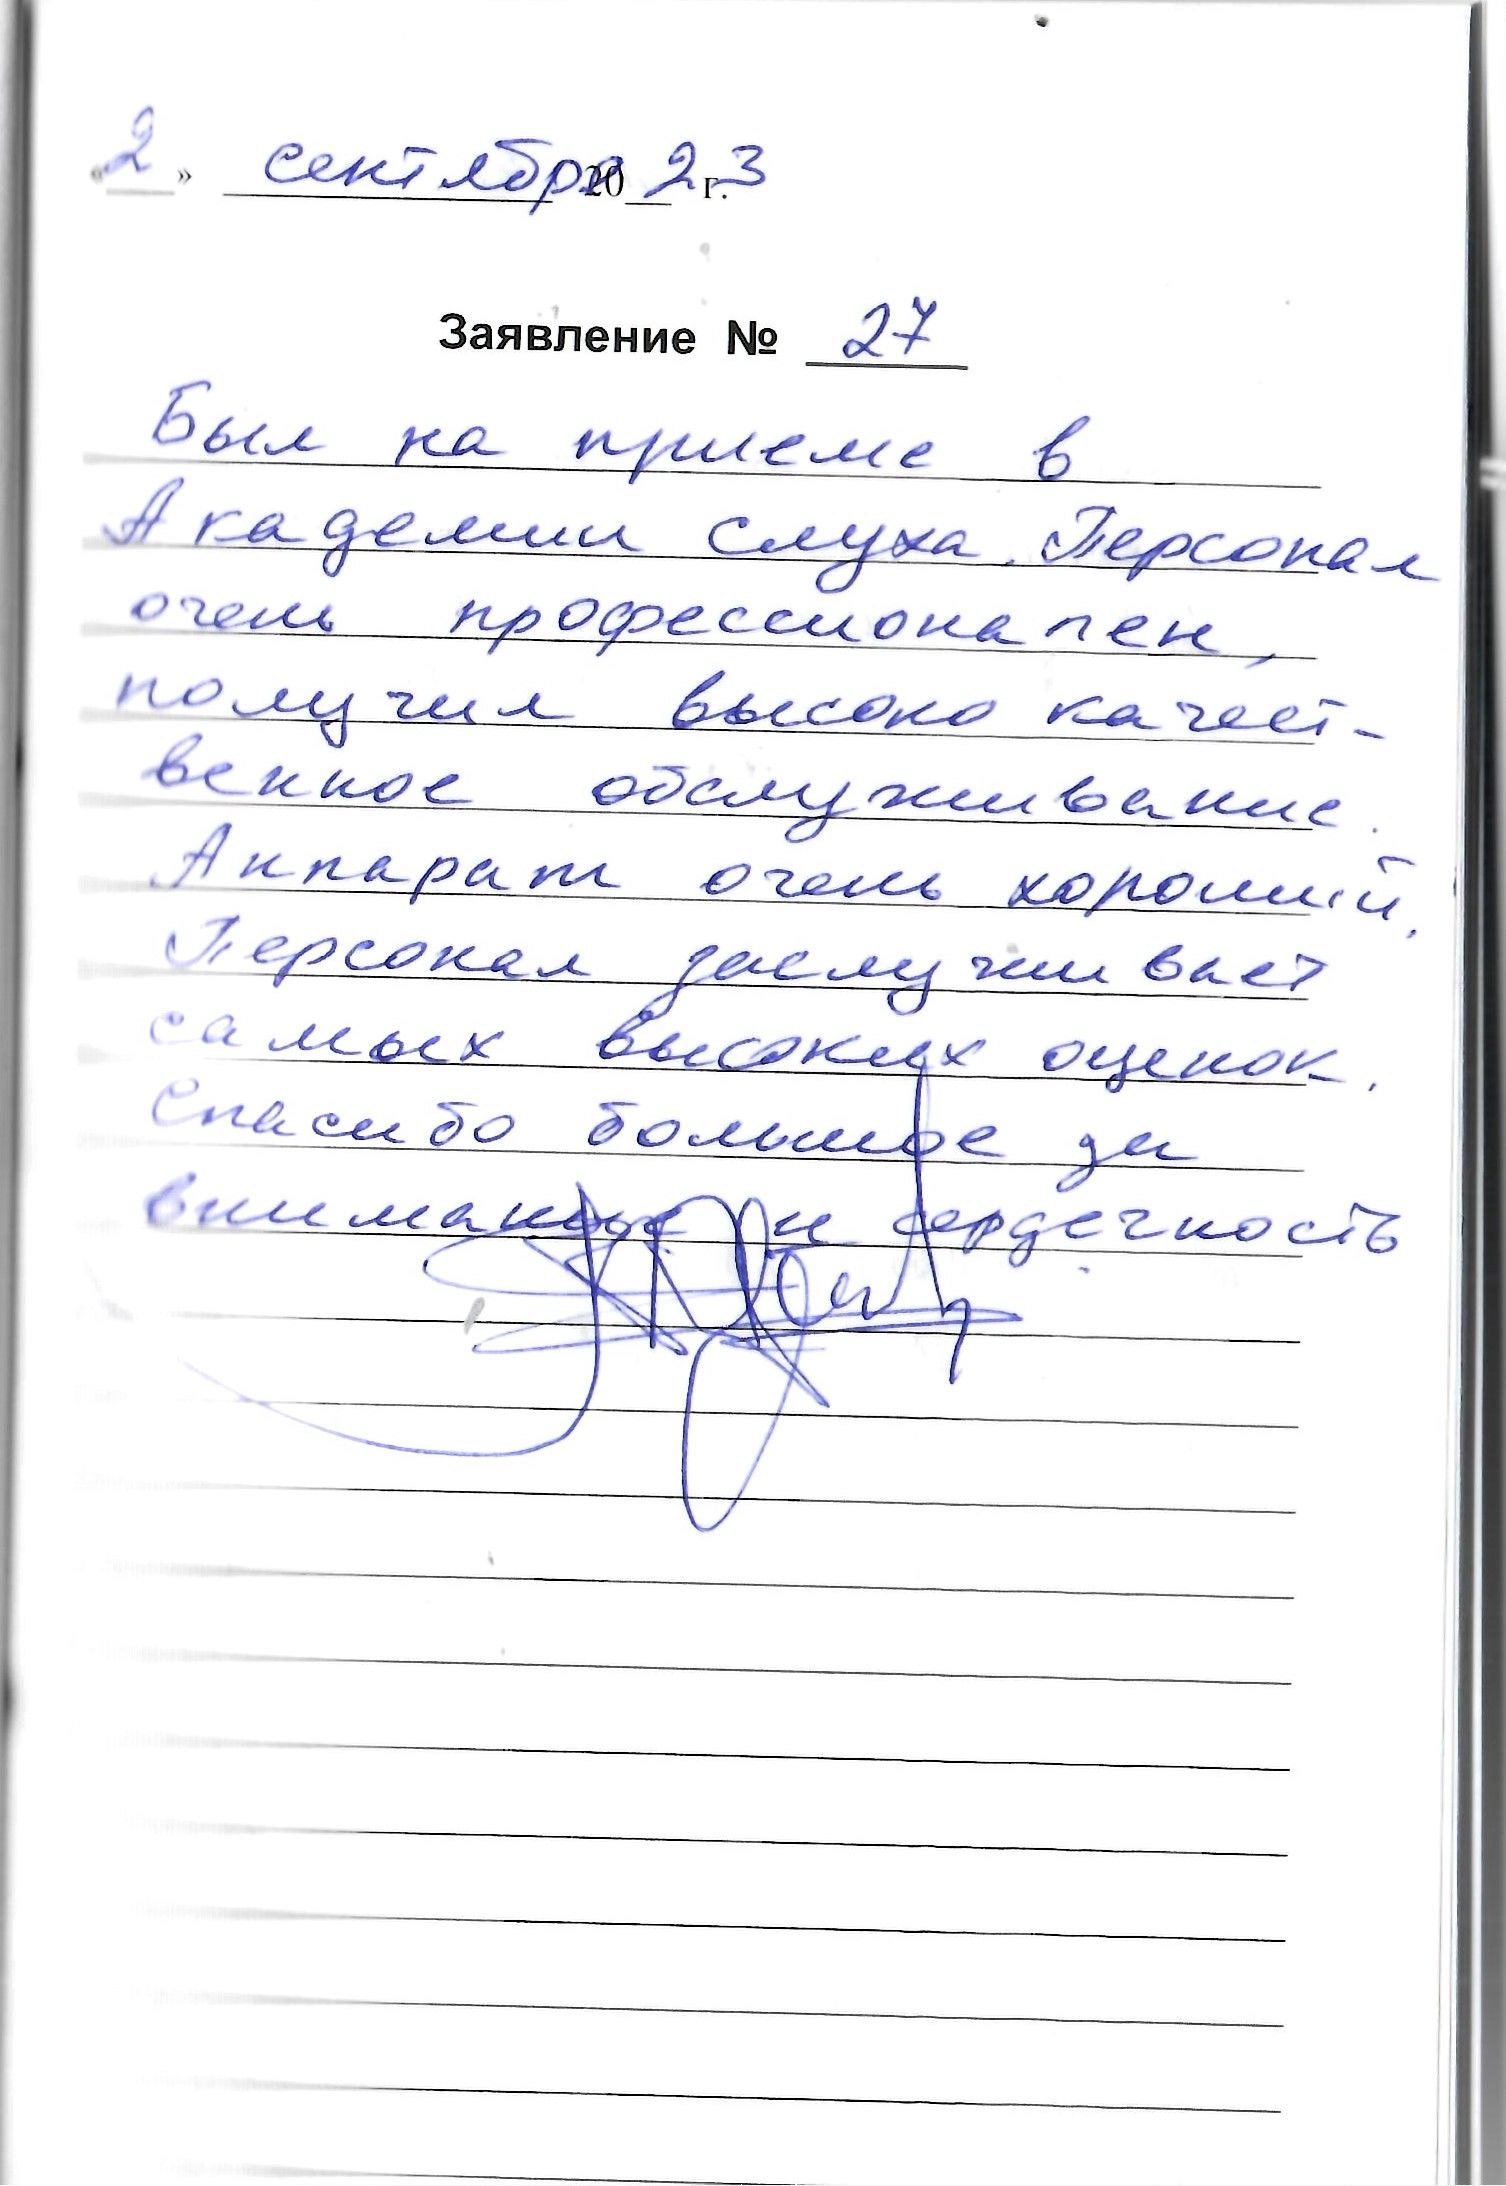 «2» сентября 2023 г.
Заявление № 27
Был на приеме в
Академии слуха. Персонал
очень профессионален,
получил высоко качест-
венное обслуживание.
Аппарат очень хороший.
Персонал заслуживает
самых высоких оценок.
Спасибо большое за
внимание и сердечность